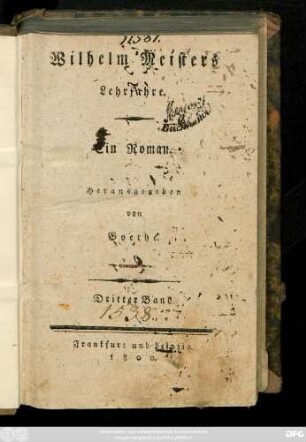 Wilhelm Meisters
Lehrjahre.
Ein Roman.
Herausgegeben
von
Goethe.
Dritter Band.
1538.
Frankfurt und Leipzig
1800.
DFG